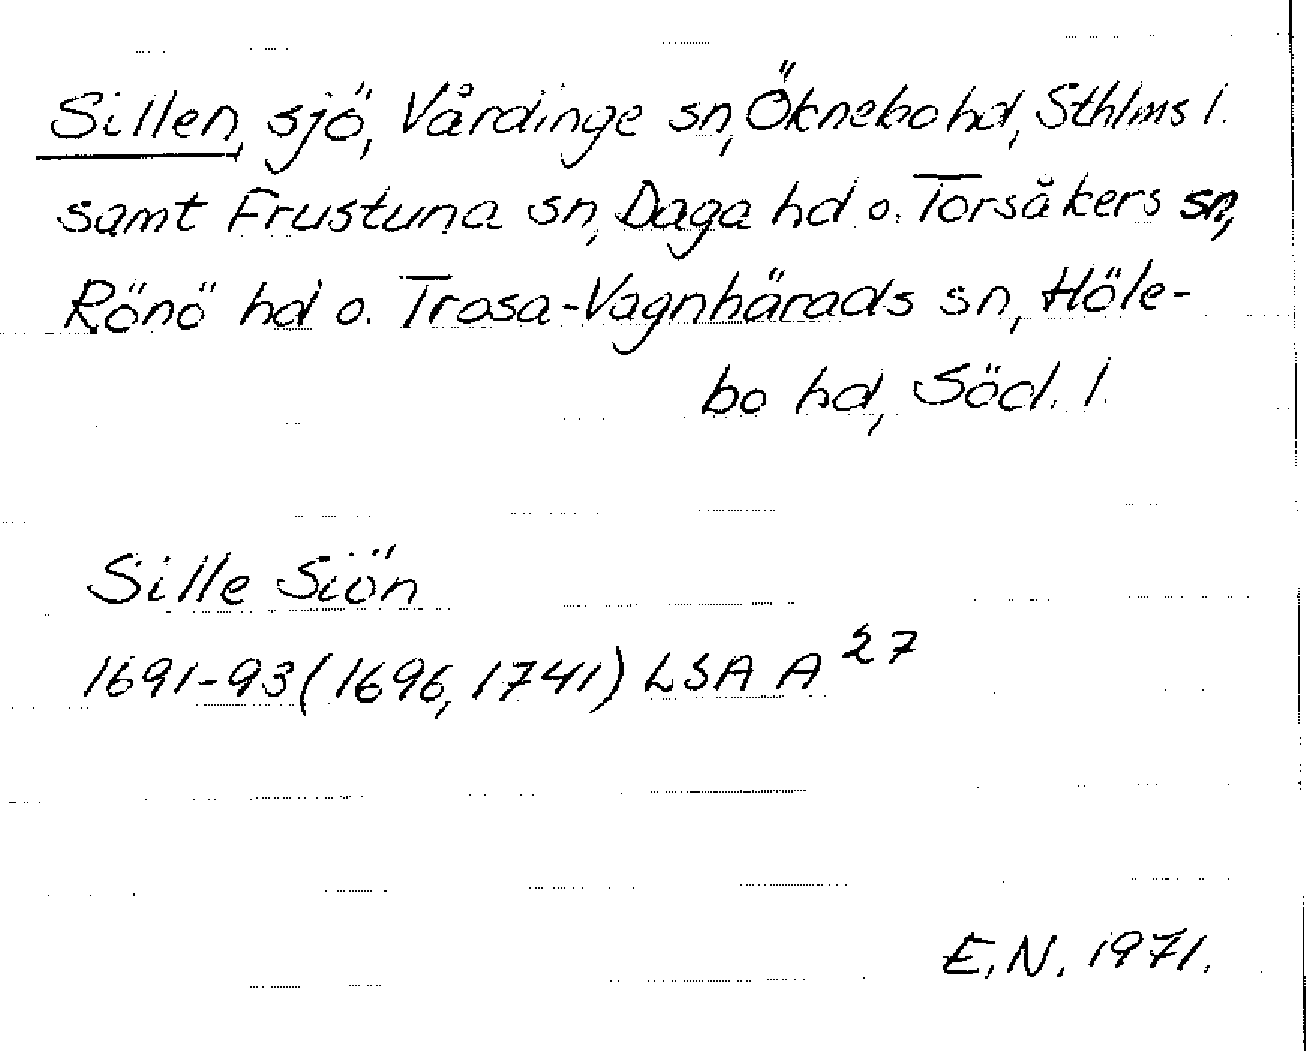 Sillen, sjö, Vårdinge sn, Öknebo hd, Sthlms l.
samt Frustuna sn, Daga hd o. Torsåkers sn,
Rönö hd o. Trosa-Vagnhärads sn, Höle-
bo hd, Söd. l.
Sille Siön
1691-93 (1696, 1741) LSA A 27
E.N. 1971.